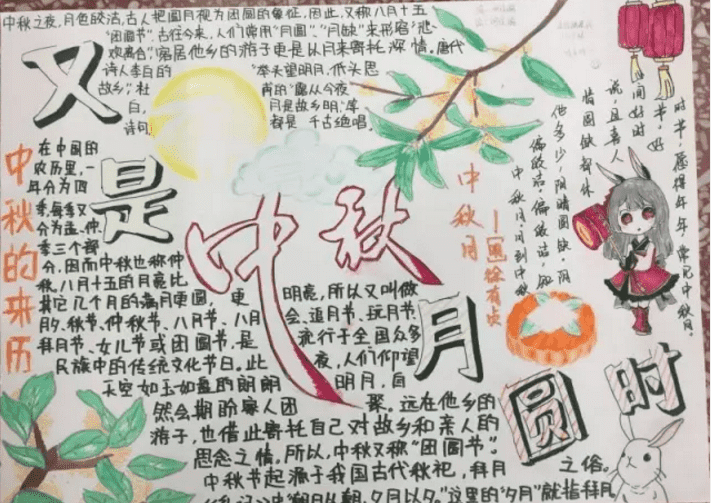 中秋之夜,月色皎洁,古人把圆月视为团圆的象征,因此,又称八月十五
"团圆节"。古往今来,人们常用"月圆"、"月缺"来形容"悲
欢离合",客居他乡的游子更是以月来寄托深情。唐代
诗人李白的"举头望明月,低头思
故乡",杜甫的"露从今夜
白,月是故乡明"等
诗句都是千古绝唱。
又
是
中秋
月
圆
时
中秋的来历
在中国的
农历里,一
年分为四
季,每季又
分为孟、仲
季三个部
分,因而中秋也称仲
秋。八月十五的月亮比
其它几个月的满月更圆,更明亮,所以又叫做
月夕、秋节、仲秋节、八月节、八月会、追月节、玩月节、
拜月节、女儿节或团圆节,是流行于全国众多
民族中的传统文化节日。此夜,人们仰望
天空如玉如盘的朗朗明月,自
然会期盼家人团聚。远在他乡的
游子,也借此寄托自己对故乡和亲人的
思念之情。所以,中秋又称"团圆节"。
中秋节起源于我国古代秋祀,拜月之俗。
朝日以朝,夕月以夕。"这里的"夕月"就指拜月
中秋月
徐有贞
中秋月。月到中秋
偏皎洁。偏皎洁,知
他多少,阴晴圆缺。阴
晴圆缺都休
说,且喜人
间好时
节。好
时节,愿得年年,常见中秋月。